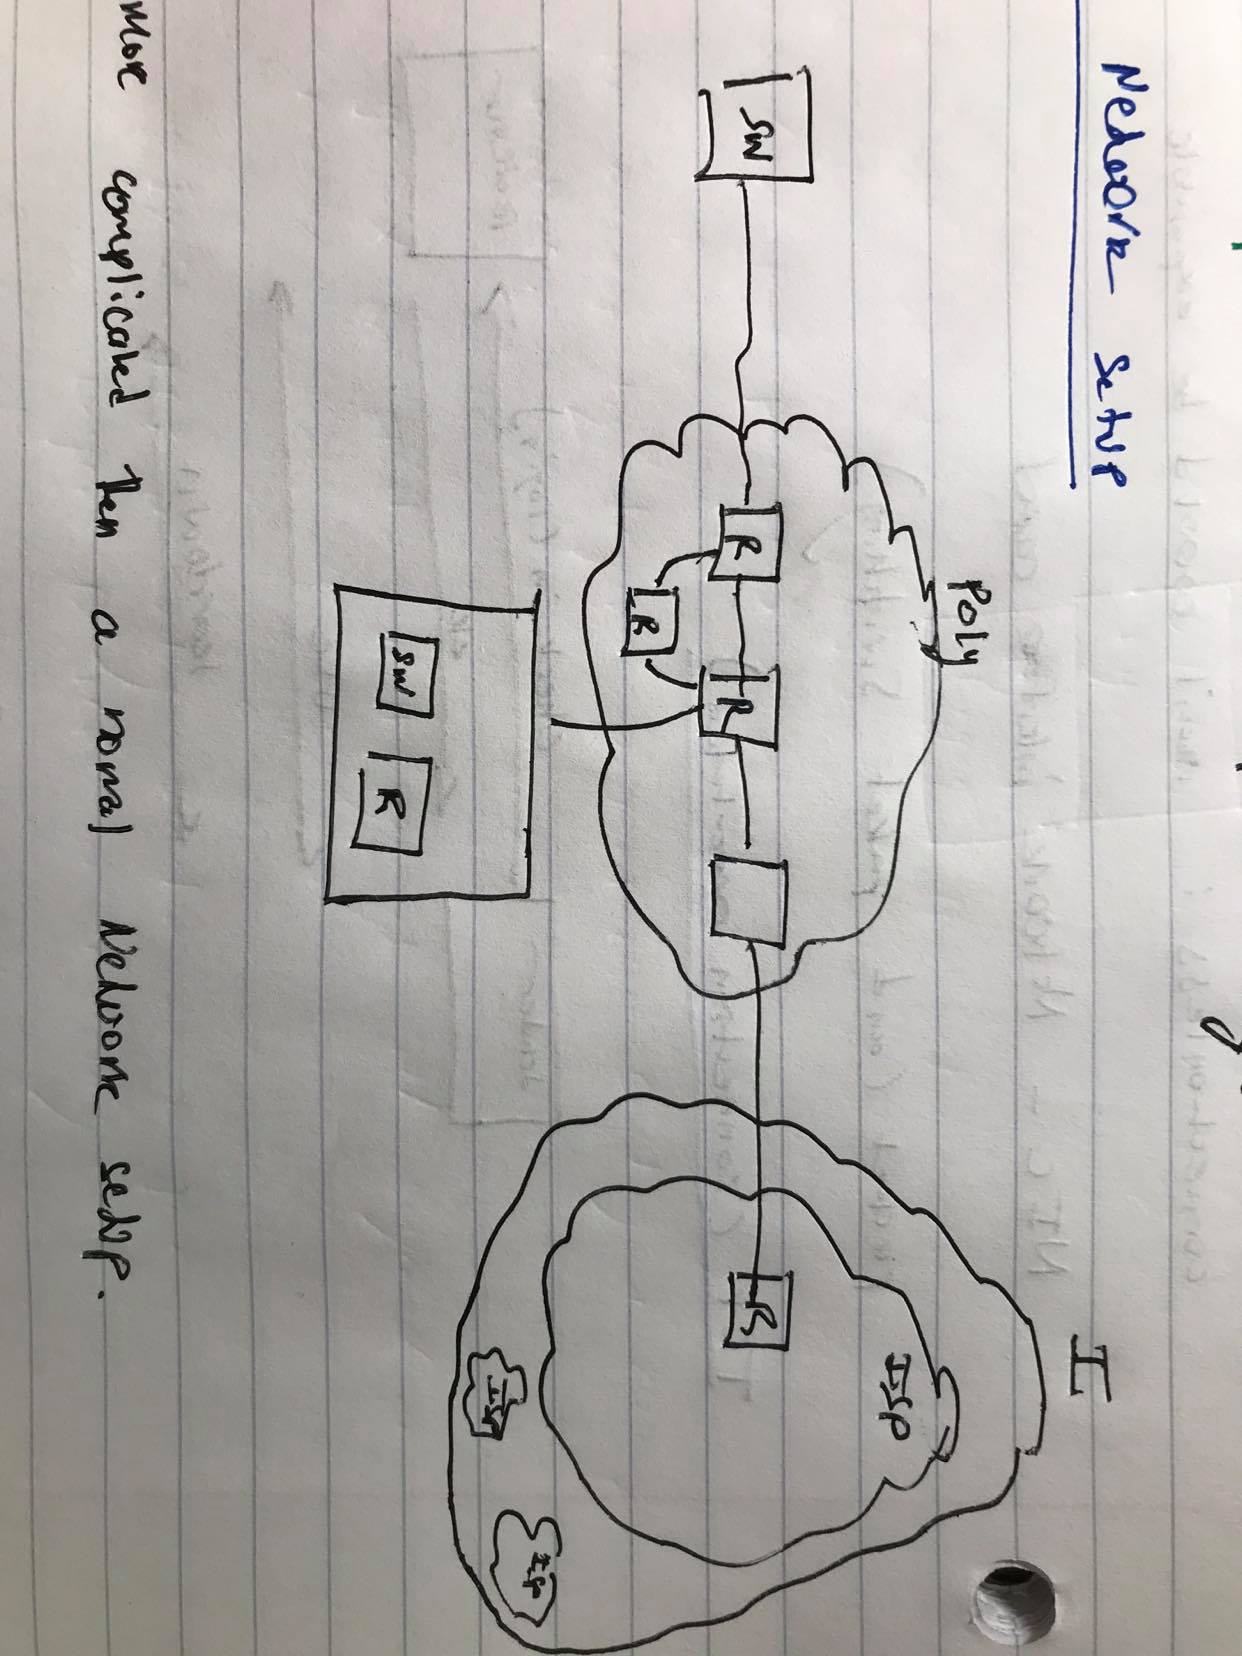 Nedwork Setup
Poly
I
SW
R
R
R
R
ISP
SW
R
ISP
More complicated then a normal Nedwork sedup.